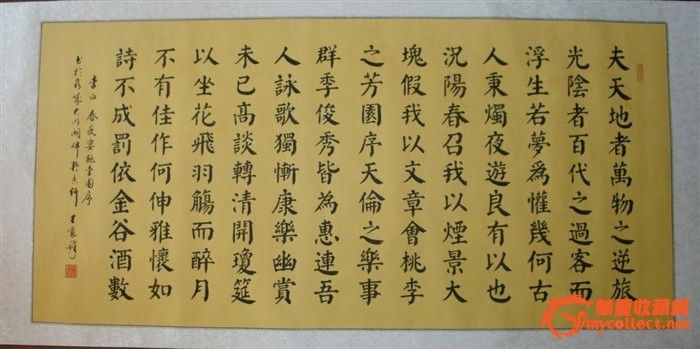 夫天地者萬物之逆旅
光陰者百代之過客而
浮生若夢爲懽幾何古
人秉燭夜遊良有以也
況陽春召我以煙景大
塊假我以文章會桃李
之芳園序天倫之樂事
群季俊秀皆為惠連吾
人詠歌獨慚康樂幽賞
未已高談轉清開瓊筵
以坐花飛羽觴而醉月
不有佳作何伸雅懷如
詩不成罰依金谷酒數
李白 春夜宴桃李園序
书於泉城大明湖畔
華夏收藏網
mycollect.net